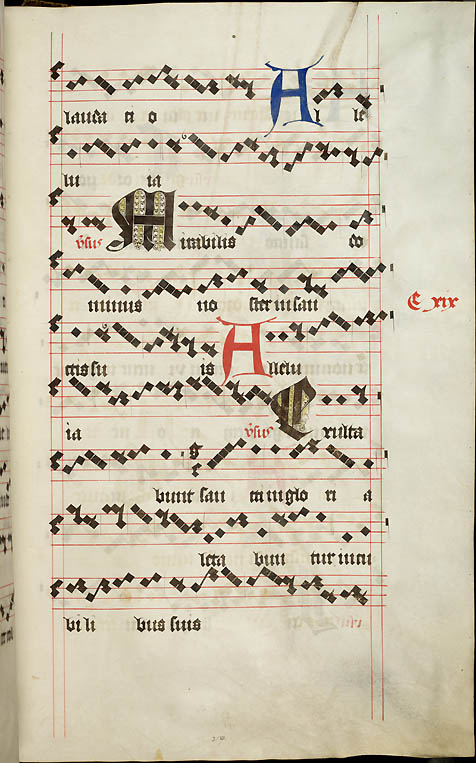 lauda ti o Al le
lu ia
v̄sus Mirabilis do
minus no ster in san
ctis su is Allelu
C xix
ia v̄sus Exulta
bunt san cti in glo ri a
leta bun tur in cu
bi li bus suis